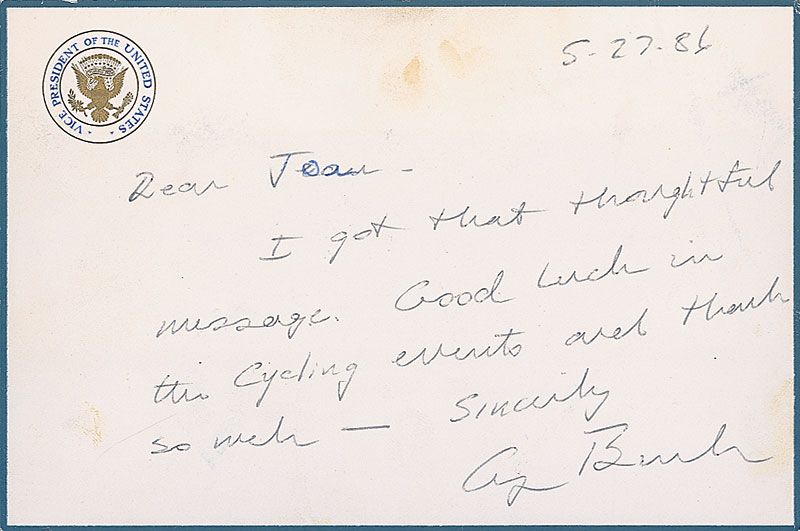 VICE PRESIDENT OF THE UNITED STATES
5-27-86
Dear Joan -
I got that thoughtful
message. Good luck in
the Cycling events and thank
so much — Sincerely
Bush